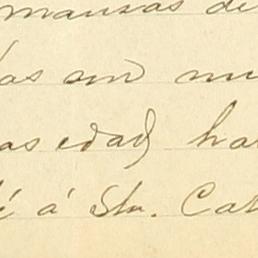 manzas de
as am mu
as edad ha
é á Sta. Cat